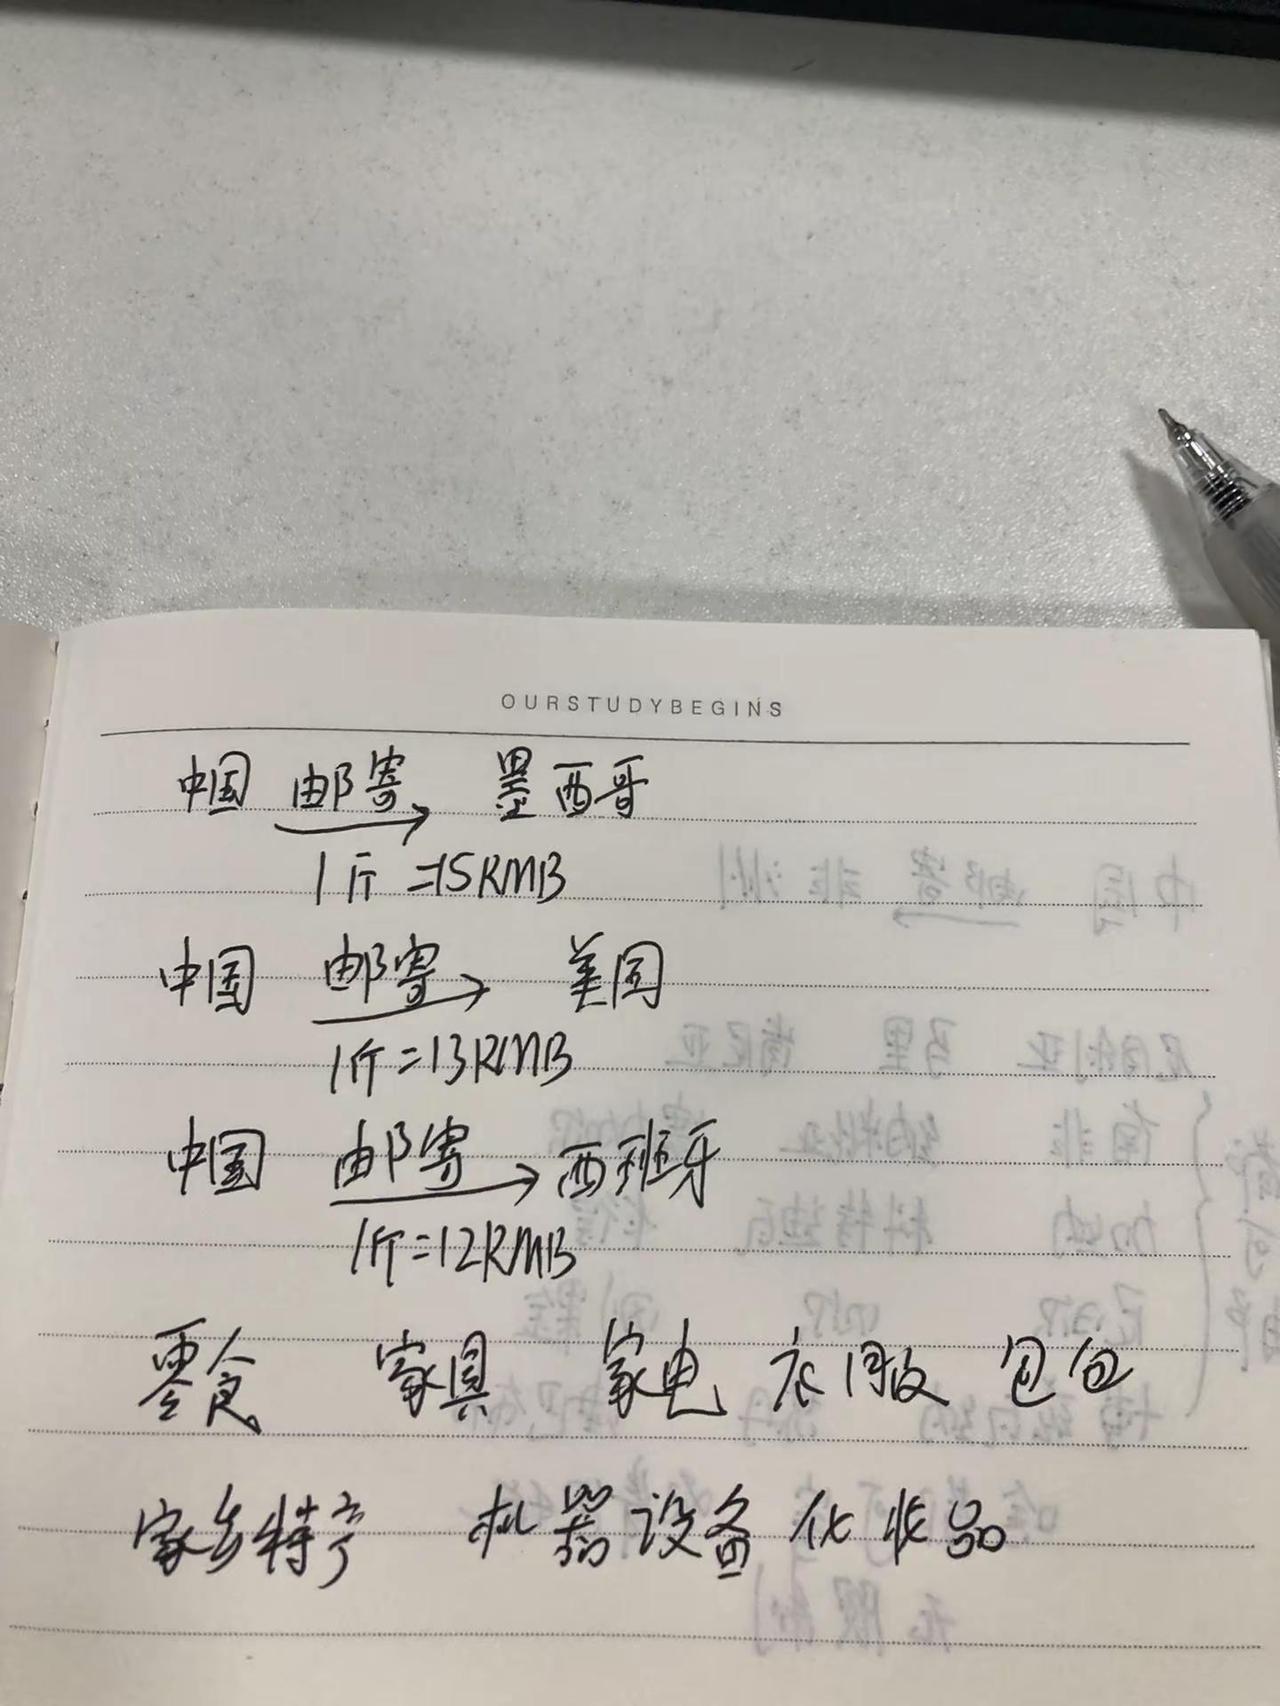 OURSTUDYBEGINS
中国 邮寄 墨西哥
1斤=15RMB
中国 邮寄 美国
1斤=13RMB
中国 邮寄 西班牙
1斤=12RMB
零食 家具 家电 衣服 包包
家乡特产 机器设备 化妆品